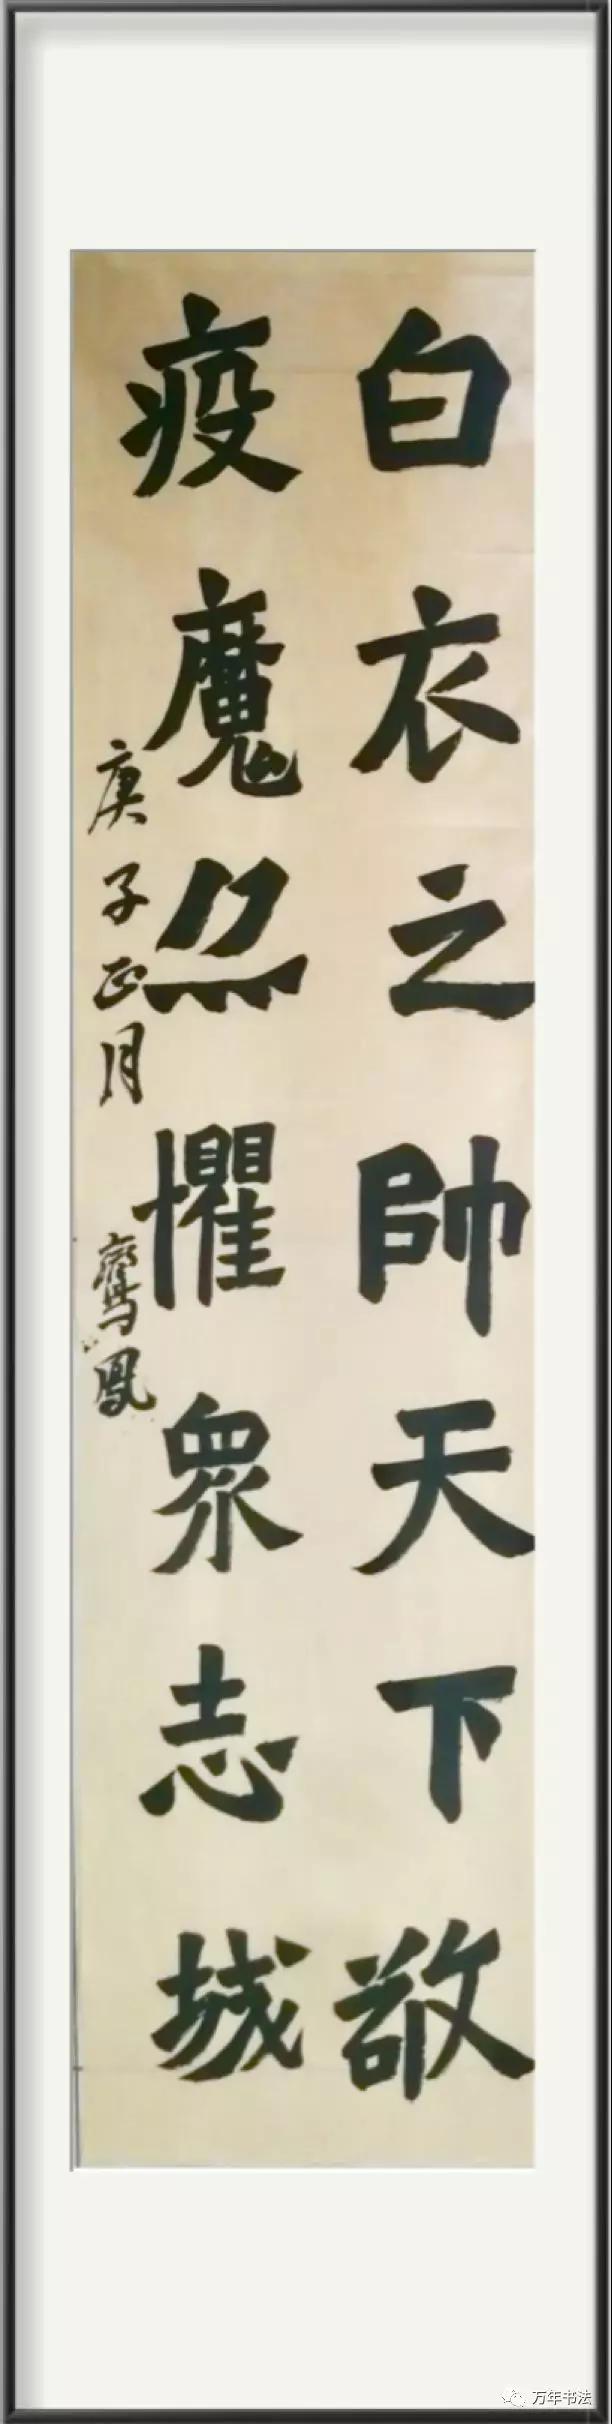 白衣之帥天下敬
疫魔懼眾志城
庚子正月 鳳
万年书法